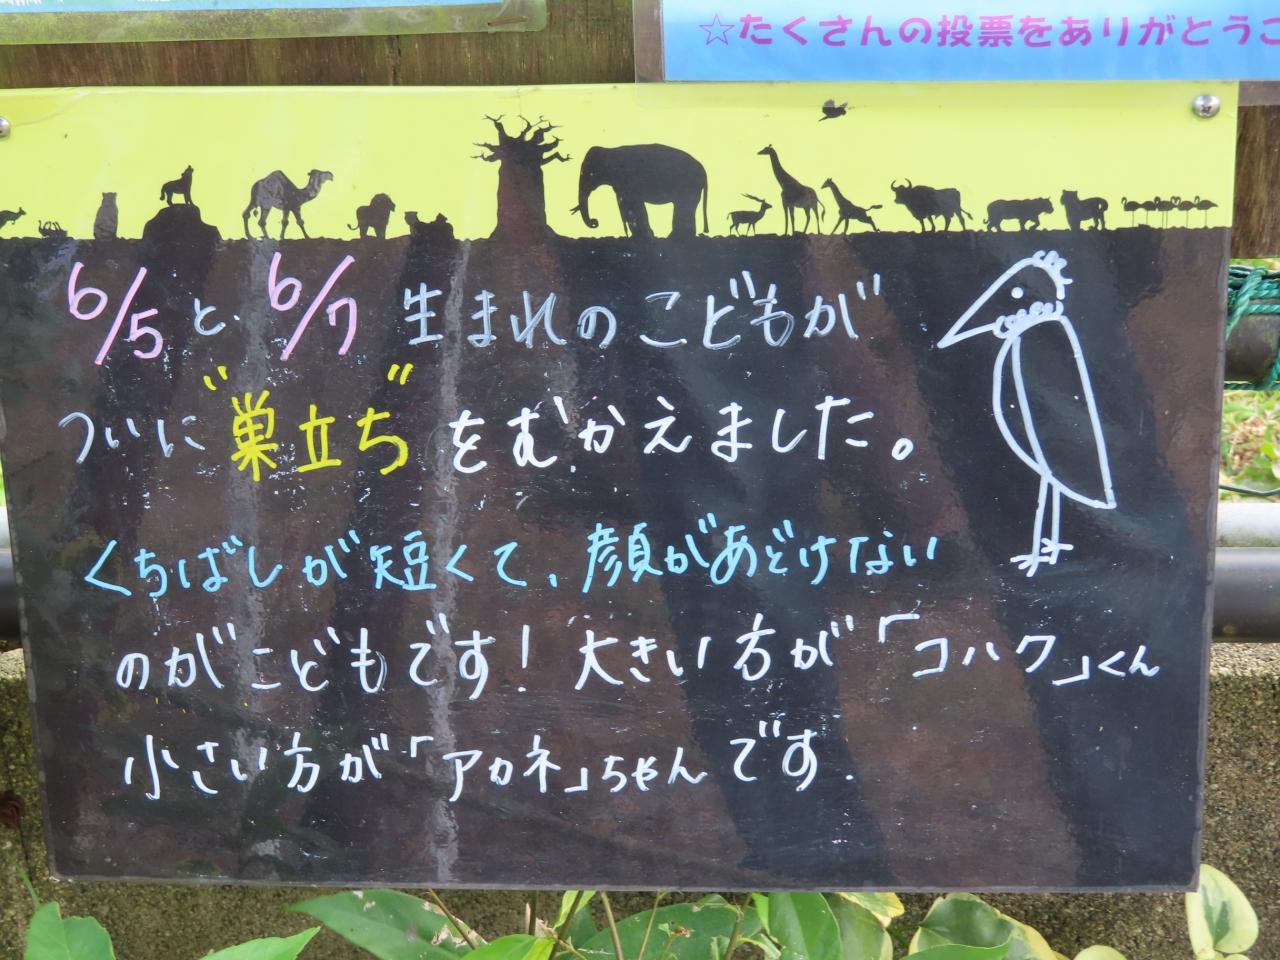 ☆たくさんの投票をありがとうご
6/5と6/7 生まれのこどもが
ついに"巣立ち"をむかえました。
くちばしが短くて、顔があどけない
のがこどもです!大きい方が「コハク」くん
小さい方が「アカネ」ちゃんです.